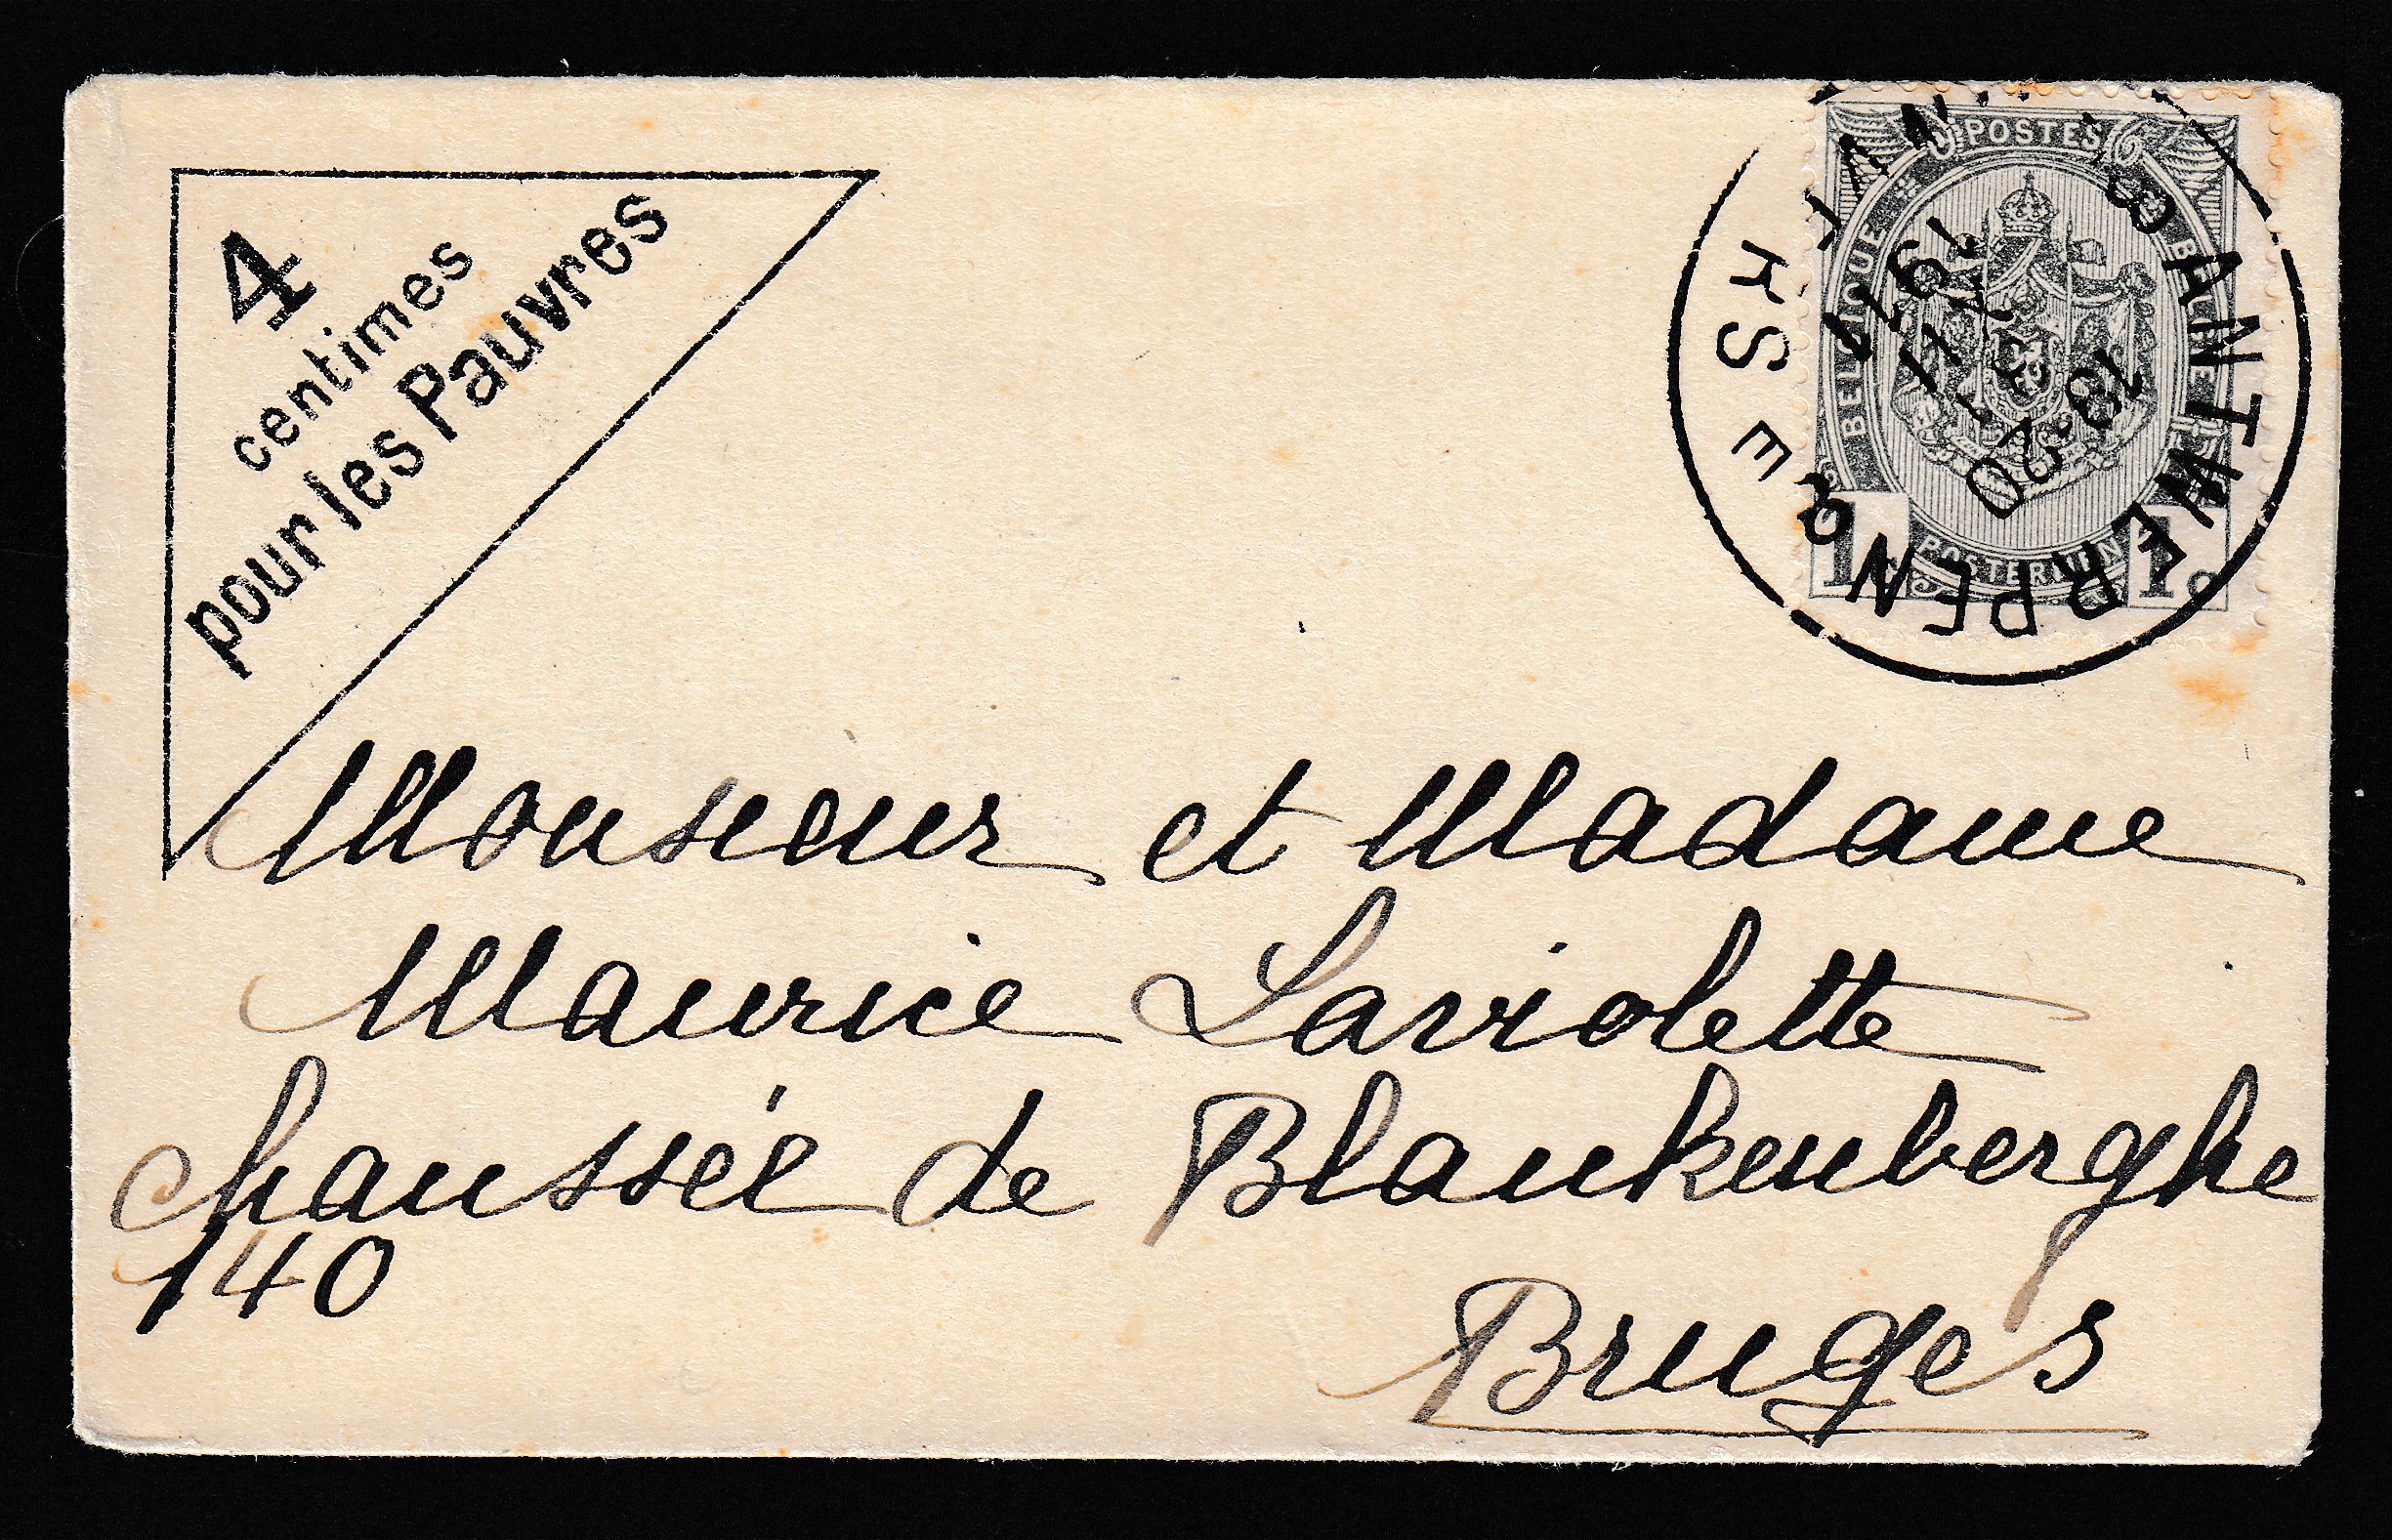 4
centimes
pour les Pauvres
POSTES
BELGIQUE
BELGIE
1
1c
ANTWERPEN
19-20
1911
Monsieur et Madame
Maurice Laviolette
Chaussée de Blankenberghe
140
Bruges